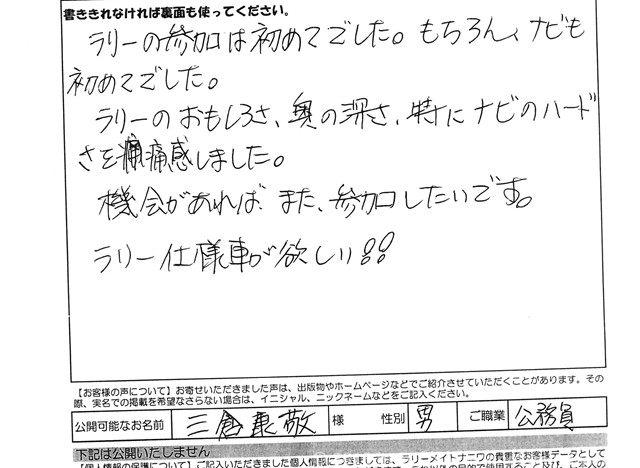 書ききれなければ裏面も使ってください。
ラリーの参加は初めてでした。もちろん、ナビも
初めてでした。
ラリーのおもしろさ、奥の深さ、特にナビのハード
さを痛感しました。
機会があれば また、参加したいです。
ラリー仕様車が欲しい!!
【お客様の声について】お寄せいただきました声は、出版物やホームページなどでご紹介させていただくことがあります。その
際、実名での掲載を希望なさらない場合は、イニシャル、ニックネームなどをご記入ください。
公開可能なお名前 三倉 敬 様 性別 男 ご職業 公務員
下記は公開いたしません
【個人情報の保護について】ご記入いただきました個人情報につきましては、ラリーメイトナニワの貴重なお客様データとして